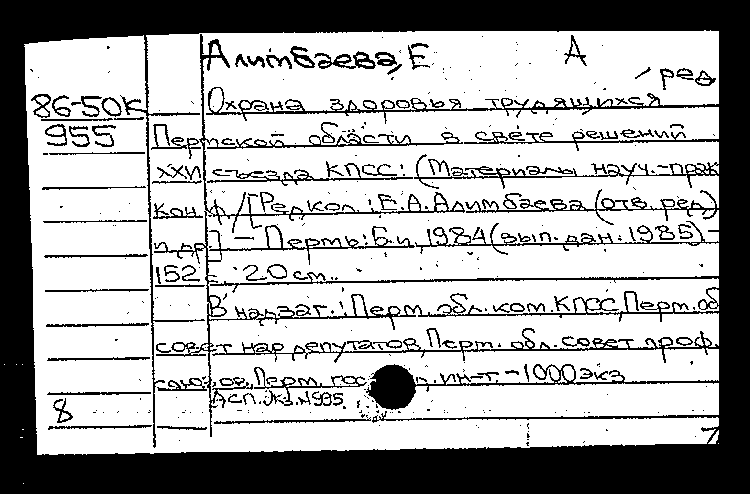 Алимбаева, Е А
ред
86-50К Охрана здоровья трудящихся
955 Пермской области в свете решений
XXVI съезда КПСС: (Материалы науч.-прак
конф./[Редкол.: Е.А.Алимбаева (отв. ред)
и др] - Пермь: Б.и, 1984 (вып. дан. 1985) -
152 с.; 20 см.
В надзаг.: Перм. обл. ком. КПСС, Перм. об
совет нар депутатов, Перм. обл. совет проф.
союзов, Перм. гос ин-т. - 1000 экз
8